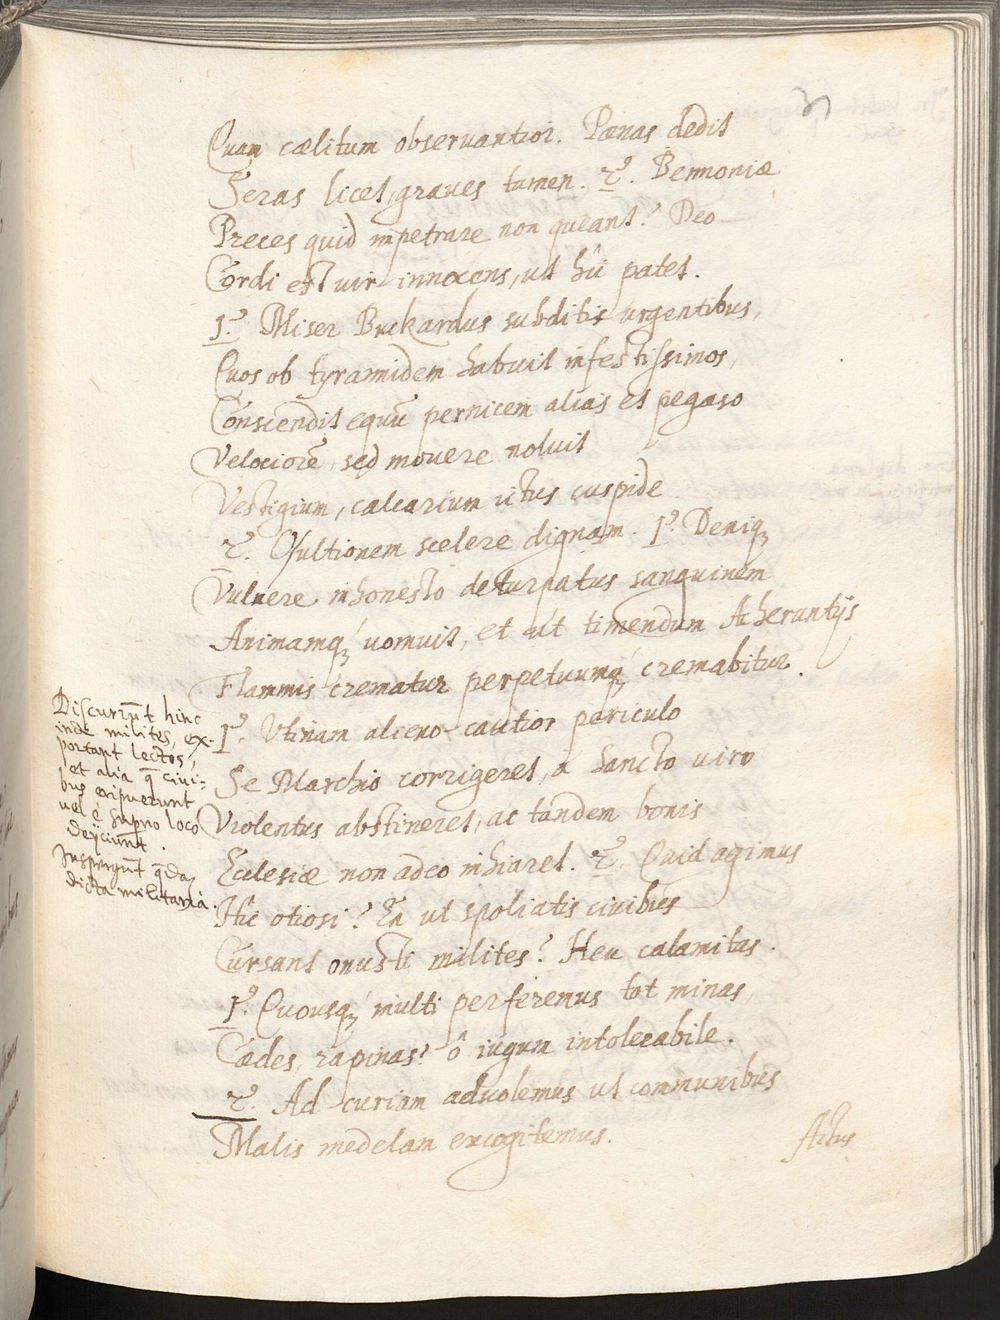 Quam cælitum observantior. Pœnas dedit
Seras licet, graves tamen. 2.⁹ Bennoniæ
Preces quid impetrare non queant? Deo
Cordi est vir innocens, ut hîi patet.
1.⁹ Miser Buckardus subditis urgentibus,
Quos ob tyrannidem habuit infestissimos,
Conscendit equū pernicem alias et pegaso
Velociorē, sed movere noluit
Vestigium, calcarium ictus cuspide
2. O ultionem scelere dignam. 1.⁹ Deniq₃
Vulnere inhonesto deturpatus sanguinem
Animamq₃ vomuit, et ut timendum Acherantijs
Flammis crematur perpetuumq₃ cremabitur.
1.⁹ Utinam alieno cautior periculo
Se Marchio corrigeret, a sancto viro
Violentus abstineret, ac tandem bonis
Ecclesiæ non adeo inhiaret. 2.⁹ Quid agimus
Hîc otiosi? En ut spoliatis civibus
Cursant onusti milites? Heu calamitas.
1.⁹ Quousq₃ multi perferemus tot minas,
Cædes, rapinas? ô iugum intolerabile.
2.⁹ Ad curiam advolemus ut communibus
Malis medelam excogitemus.
Actus
Discurrūt hinc
inde milites, ex-
portant lectos,
et alia q̄ civi-
bus eripuerunt
vel è supno loco
deijciunt.
Inspergūt q̄dā
dicta militaria.